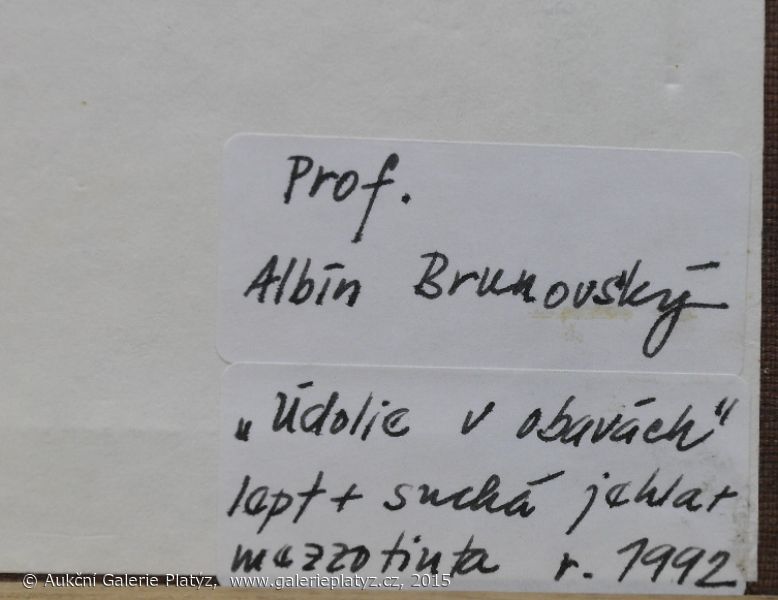 Prof.
Albín Brunovský
„Údolie v obavách"
lept + suchá jehla +
mezzotinta r. 1992
© Aukční Galerie Platýz, www.galerieplatyz.cz, 2015